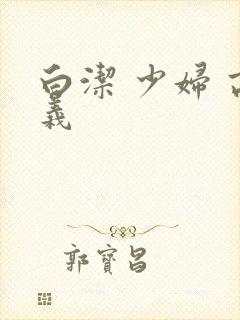 白潔 少婦
義
郭寶昌